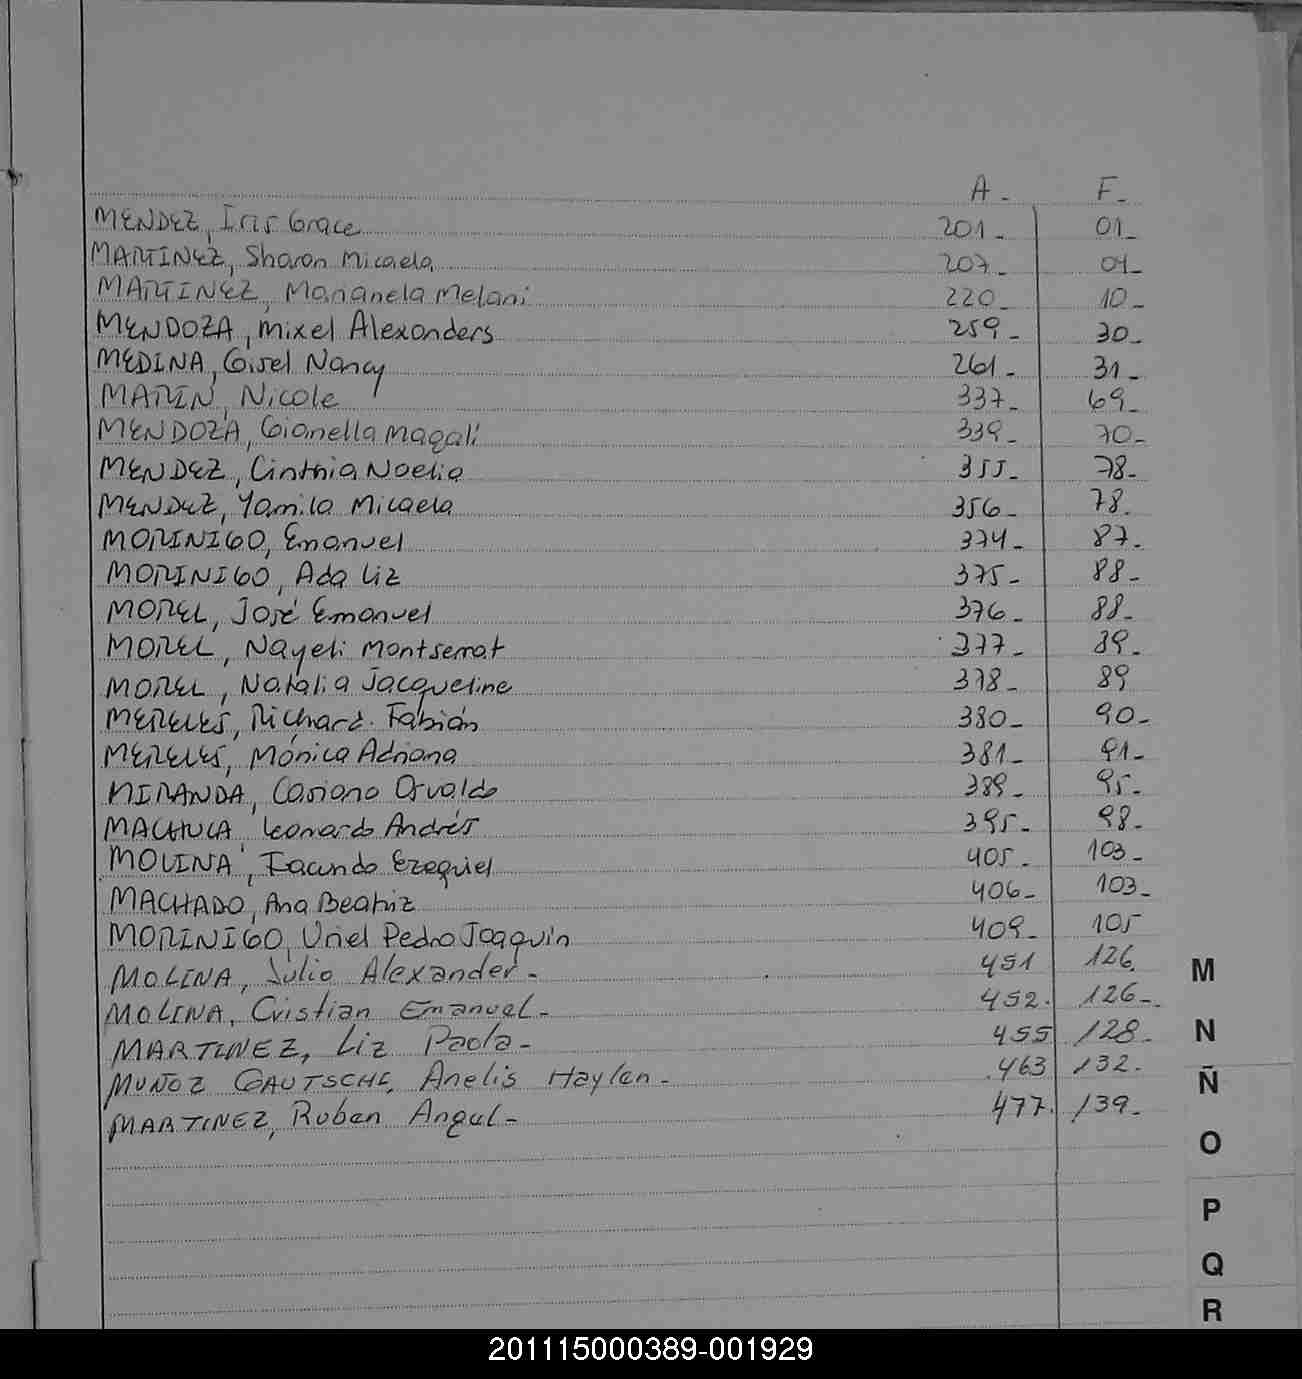 A - F -
MENDEZ, Iris Grace 201 - 01 -
MARTINEZ, Sharon Micaela 207 - 04 -
MARTINEZ, Marianela Melani 220 - 10 -
MENDOZA, Mixel Alexanders 259 - 30 -
MEDINA, Gisel Nancy 261 - 31 -
MARIN, Nicole 337 - 69 -
MENDOZA, Gianella Magali 339 - 70 -
MENDEZ, Cinthia Noelia 355 - 78 -
MENDEZ, Yamila Micaela 356 - 78 -
MORINIGO, Emanuel 374 - 87 -
MORINIGO, Ada Liz 375 - 88 -
MOREL, José Emanuel 376 - 88 -
MOREL, Nayeli Montserrat 377 - 89 -
MOREL, Natalia Jacqueline 378 - 89
MERELES, Richard Fabián 380 - 90 -
MERELES, Mónica Adriana 381 - 91 -
MIRANDA, Casiano Osvaldo 389 - 95 -
MACHUCA, Leonardo Andrés 395 - 98 -
MOLINA, Facundo Ezequiel 405 - 103 -
MACHADO, Ana Beatriz 406 - 103 -
MORINIGO, Uriel Pedro Joaquín 409 - 105
MOLINA, Julio Alexander - 451 126
MOLINA, Cristian Emanuel - 452 - 126 -
MARTINEZ, Liz Paola - 455 128 -
MUÑOZ GAUTSCHI, Anelis Haylen - 463 132 -
MARTINEZ, Ruben Angel - 477 139 -
M
N
Ñ
O
P
Q
R
201115000389-001929